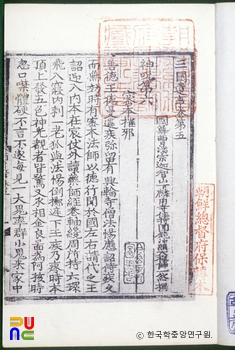 三國遺事卷第五
國尊曹溪宗迦智山下麟角寺住持圓鏡冲照大禪師一然撰
神呪第六
密本摧邪
善德王德曼遘疾弥留有興輪寺僧法惕應詔侍疾久
而無効時有密本法師以德行聞於國左右請代之王
詔迎入內本在宸仗外讀藥師經卷軸纔周所持六環
飛入寢內刺一老狐與法惕倒擲庭下王疾乃瘳時本
頂上發五色神光覩者皆驚又承相金良圖為阿孩時
忽口噤體硬不言不遂每見一大鬼率群小鬼來家中
朝鮮總督府保
PUNC
©한국학중앙연구원.